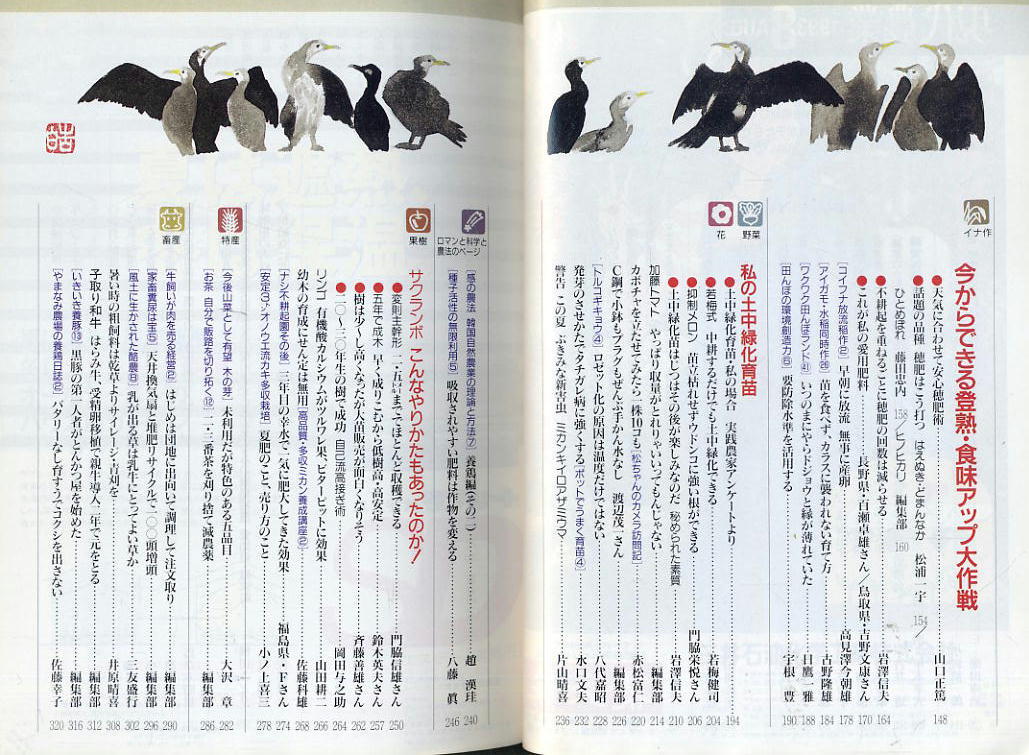 イナ作
今からできる登熟・食味アップ大作戦
●天気に合わせて安心穂肥術……山口正篤 148
●話題の品種 穂肥はこう打つ はえぬき・どまんなか 松浦一宇 154／
ひとめぼれ 藤田忠内 158／ヒノヒカリ 編集部 160
●不耕起を重ねるごとに穂肥の回数は減らせる……岩澤信夫 164
●これが私の愛用肥料……長野県・百瀬卓雄さん／鳥取県・吉野文康さん 170
[コイフナ放流稲作②] 早朝に放流 無事に産卵……高見澤今朝雄 178
[アイガモ・水稲同時作㉖] 苗を食べず、カラスに襲われない育て方……古野隆雄 184
[ワクワク田んぼランド㊶] いつのまにやらドジョウと縁が薄れていた……日鷹一雅 188
[田んぼの環境創造力⑥] 要防除水準を活用する……宇根 豊 190
野菜
花
私の土中緑化育苗
●土中緑化育苗・私の場合 実践農家アンケートより……194
●若梅式 中耕するだけでも土中緑化できる……若梅健司 204
●抑制メロン 苗立枯れせずウドンコに強い根ができる……門脇栄悦さん 206
●土中緑化苗はじつはその後が楽しみなのだ 秘められた素質……岩澤信夫 210
加藤トマト やっぱり収量がとれりゃいいってもんじゃない……編集部 214
カボチャを立たせてみたら一株10コも [松ちゃんのカメラ訪問記]……赤松富仁 220
C鋼で小鉢もプラグもぜんぶ手かん水なし 渡辺茂一さん……編集部 226
[トルコギキョウ④] ロゼット化の原因は温度だけではない……八代嘉昭 228
発芽のさせかたでタチガレ病に強くする [ポットでうまく育苗④]……水口文夫 232
警告 この夏 ぶきみな新害虫 ミカンキイロアザミウマ……片山晴喜 236
ロマンと科学と
農法のページ
[感の農法 韓国自然農業の理論と方法⑦] 養鶏編(その一)……趙 漢珪 240
[種子活性の無限利用⑤] 吸収されやすい肥料は作物を変える……八藤 眞 246
果樹
サクランボ こんなやりかたもあったのか！
●変則主幹形 二・五以まででほとんど収穫できる……門脇信雄さん 250
●五年で成木 早く成りこむから低樹高・高安定……鈴木英夫さん 257
●樹は少し高くなったが大苗販売が面白くなりそう……斉藤善雄さん 262
●二〇～三〇年生の樹で成功 自己流高接ぎ術……岡田与之助 264
リンゴ 有機酸カルシウムがツルワレ果、ビターピットに効果……山田耕二 266
幼木の育成にせん定は無用 [高品質・多収ミカン養成講座②]……佐藤科雄 268
[ナシ不耕起園その後] 三年目の幸水で、一気に肥大してきた効果……福島県・Fさん 274
[安定③アオノウエ流カキ多収栽培] 夏肥のこと、売り方のこと……小ノ上喜三 278
特産
[今後山菜として有望 木の芽] 未利用だが特色のある五品目……大沢 章 282
[お茶 自分で販路を切り拓く⑫] 二・三番茶を刈り捨て減農薬……編集部 286
畜産
[牛飼いが肉を売る経営②] はじめは団地に出向いて調理して注文取り……編集部 290
[家畜糞尿は宝⑤] 天井換気扇と堆肥リサイクルで一〇〇頭増頭……編集部 296
[風土に生かされた酪農⑧] 乳が出る草は乳牛にとってよい草か……三友盛行 302
暑い時の粗飼料は乾草よりサイレージ・青刈を……井原晴喜 308
子取り和牛 はらみ牛、受精卵移植で親牛導入、二年で元をとる……編集部 312
[いきいき養豚⑬] 黒豚の第一人者がとんかつ屋を始めた……編集部 316
[やまなみ農場の養鶏日誌②] バタリーなしで育すうでコクシを出さない……佐藤幸子 320